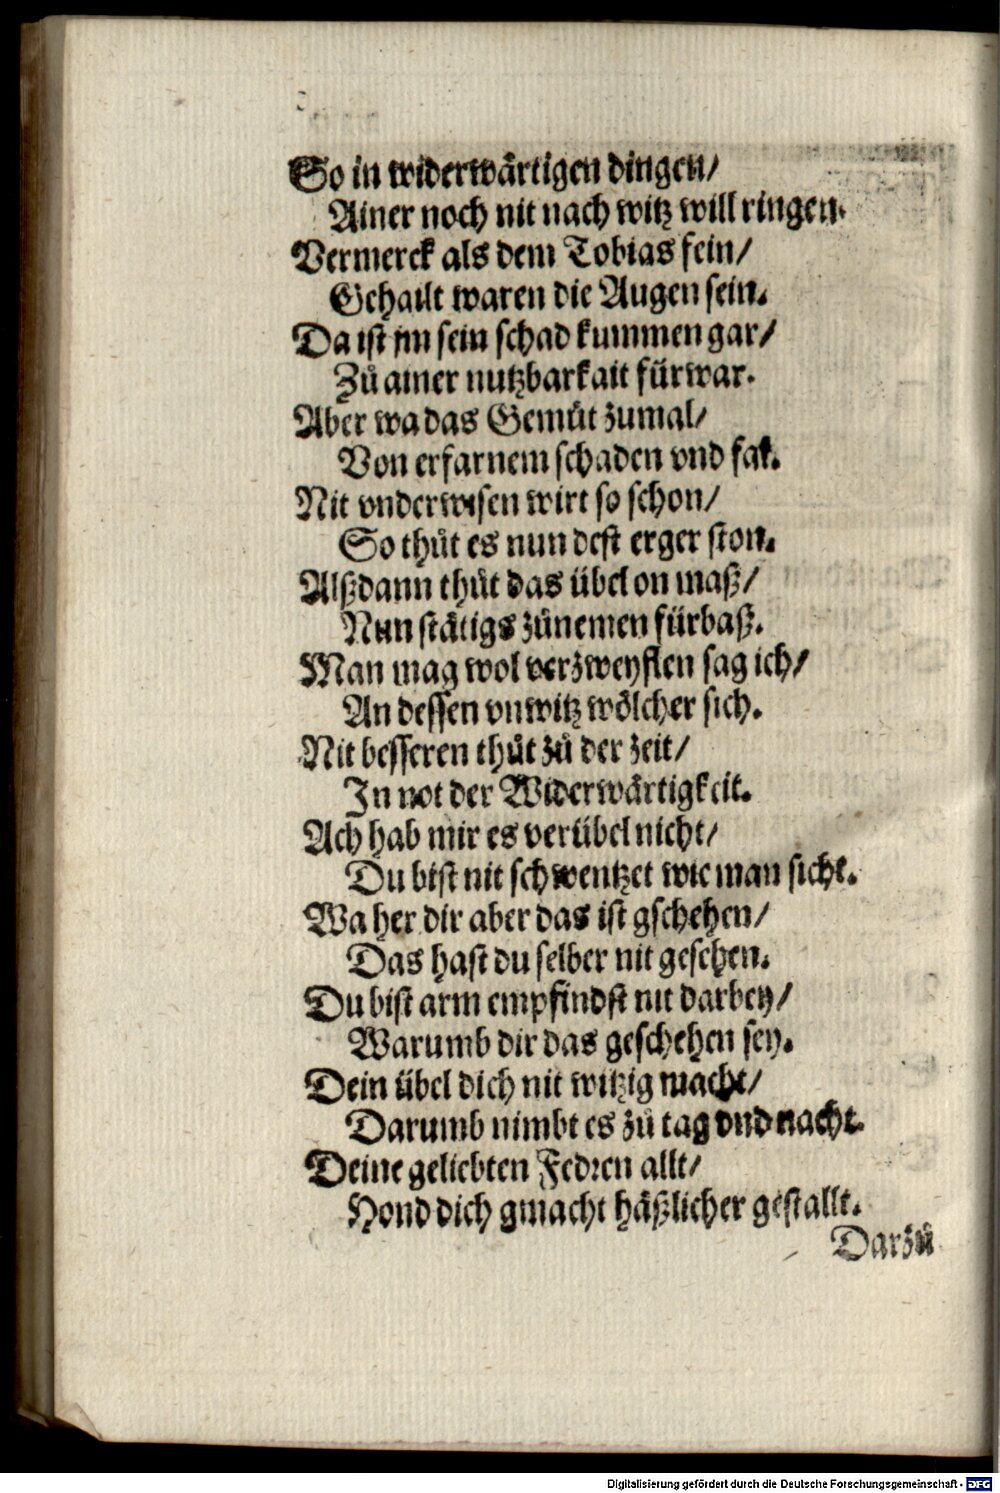 So in widerwårtigen dingen/
Ainer noch nit nach witz will ringen.
Vermerck als dem Tobias fein/
Gehailt waren die Augen sein.
Da ist jm sein schad kummen gar/
Zů ainer nutzbarkait fürwar.
Aber wa das Gemůt zumal/
Von erfarnem schaden vnd fal.
Nit vnderwisen wirt so schon/
So thůt es nun dest erger ston.
Alßdann thůt das übel on maß/
Nun stätigs zůnemen fürbaß.
Man mag wol verzweyflen sag ich/
An dessen vnwitz wôlcher sich.
Nit besseren thůt zů der zeit/
In not der Widerwårtigkeit.
Ach hab mir es verübel nicht/
Du bist nit schwentzet wie man sicht.
Wa her dir aber das ist gschehen/
Das hast du selber nit gesehen.
Du bist arm empfindst nit darbey/
Warumb dir das geschehen sey.
Dein übel dich nit witzig macht/
Darumb nimbt es zů tag vnd nacht.
Deine geliebten Fedren allt/
Hond dich gmacht häßlicher gestallt.
Darzů
Digitalisierung gefördert durch die Deutsche Forschungsgemeinschaft - DFG